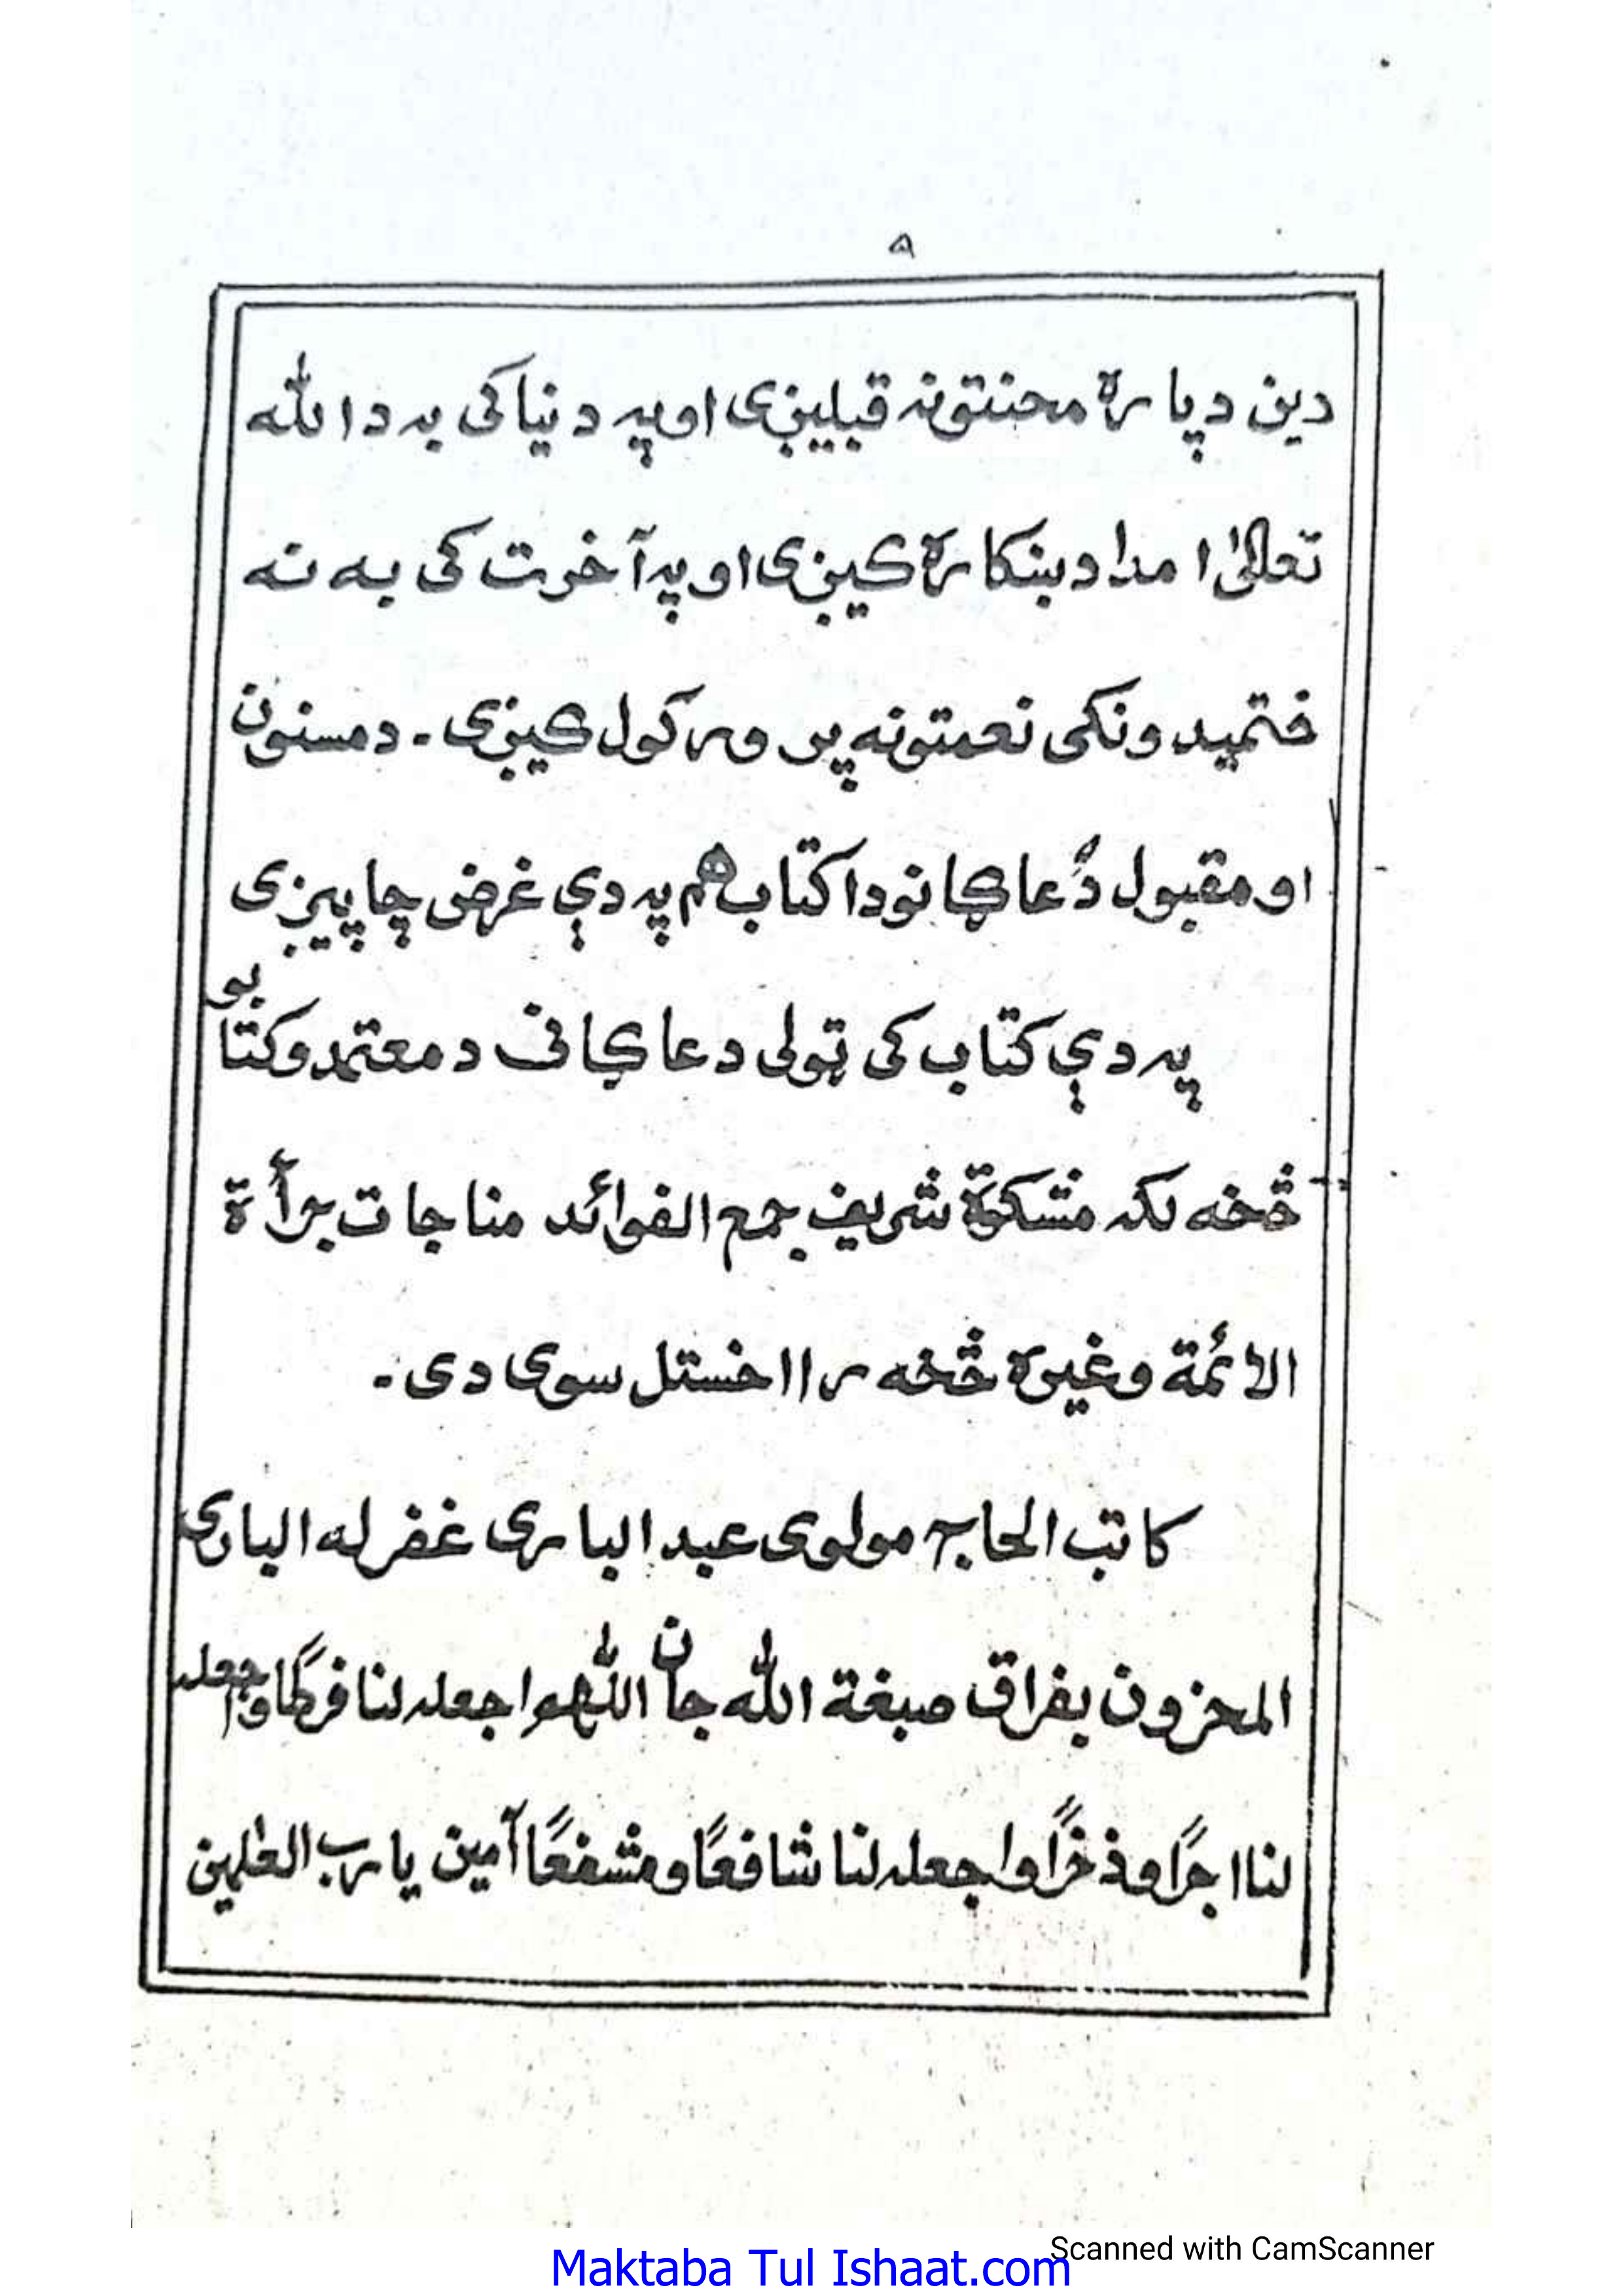 ۹
دین دپاره محنتونه قبلیږی اوپه دنیا کی به د الله
تعالیٰ امداد ښکاره کیږی او په آخرت کی به نه
ختمیدونکی نعمتونه پر ورکول کیږی۔ دمسنون
او مقبول دُعاګانو دا کتاب هم په دې غرض چاپیږی
په دې کتاب کی ټولی دعاګانی د معتمدو کتابو
څخه لکه مشکوٰة شریف جمع الفوائد مناجات برأة
الائمة وغیره څخه را اخستل سوی دی۔
کاتب الحاج مولوی عبد الباری غفرله الباری
المحزون بفراق صبغة الله جان اللّٰهم اجعله لنا فرطًا واجعله
لنا اجرًا وذخرًا واجعله لنا شافعًا ومشفعًا آمین یارب العٰلمین
Scanned with CamScanner
Maktaba Tul Ishaat.com